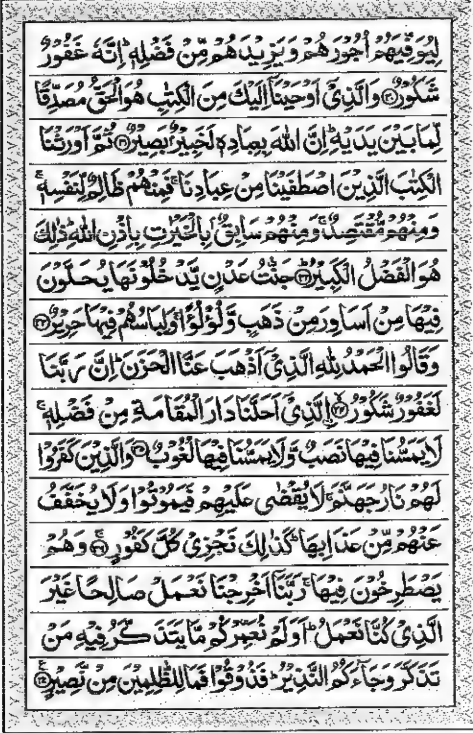 لِيُوَفِّيَهُمْ اُجُوْرَهُمْ وَيَزِيْدَهُمْ مِّنْ فَضْلِهٖ ؕ اِنَّهٗ غَفُوْرٌ
شَكُوْرٌ ﴿۳۰﴾ وَالَّذِيْۤ اَوْحَيْنَاۤ اِلَيْكَ مِنَ الْكِتٰبِ هُوَ الْحَقُّ مُصَدِّقًا
لِّمَا بَيْنَ يَدَيْهِ ؕ اِنَّ اللّٰهَ بِعِبَادِهٖ لَخَبِيْرٌۢ بَصِيْرٌ ﴿۳۱﴾ ثُمَّ اَوْرَثْنَا
الْكِتٰبَ الَّذِيْنَ اصْطَفَيْنَا مِنْ عِبَادِنَا ۚ فَمِنْهُمْ ظَالِمٌ لِّنَفْسِهٖ ۚ
وَمِنْهُمْ مُّقْتَصِدٌ ۚ وَمِنْهُمْ سَابِقٌۢ بِالْخَيْرٰتِ بِاِذْنِ اللّٰهِ ؕ ذٰلِكَ
هُوَ الْفَضْلُ الْكَبِيْرُ ﴿۳۲﴾ جَنّٰتُ عَدْنٍ يَّدْخُلُوْنَهَا يُحَلَّوْنَ
فِيْهَا مِنْ اَسَاوِرَ مِنْ ذَهَبٍ وَّلُؤْلُؤًا ۚ وَلِبَاسُهُمْ فِيْهَا حَرِيْرٌ ﴿۳۳﴾
وَقَالُوا الْحَمْدُ لِلّٰهِ الَّذِيْۤ اَذْهَبَ عَنَّا الْحَزَنَ ؕ اِنَّ رَبَّنَا
لَغَفُوْرٌ شَكُوْرُ ۙ﴿۳۴﴾ الَّذِيْۤ اَحَلَّنَا دَارَ الْمُقَامَةِ مِنْ فَضْلِهٖ ۚ
لَا يَمَسُّنَا فِيْهَا نَصَبٌ وَّلَا يَمَسُّنَا فِيْهَا لُغُوْبٌ ﴿۳۵﴾ وَالَّذِيْنَ كَفَرُوْا
لَهُمْ نَارُ جَهَنَّمَ ۚ لَا يُقْضٰى عَلَيْهِمْ فَيَمُوْتُوْا وَلَا يُخَفَّفُ
عَنْهُمْ مِّنْ عَذَابِهَا ؕ كَذٰلِكَ نَجْزِيْ كُلَّ كَفُوْرٍ ۚ﴿۳۶﴾ وَهُمْ
يَصْطَرِخُوْنَ فِيْهَا ۚ رَبَّنَاۤ اَخْرِجْنَا نَعْمَلْ صَالِحًا غَيْرَ
الَّذِيْ كُنَّا نَعْمَلُ ؕ اَوَلَمْ نُعَمِّرْكُمْ مَّا يَتَذَكَّرُ فِيْهِ مَنْ
تَذَكَّرَ وَجَآءَكُمُ النَّذِيْرُ ؕ فَذُوْقُوْا فَمَا لِلظّٰلِمِيْنَ مِنْ نَّصِيْرٍ ﴿۳۷﴾